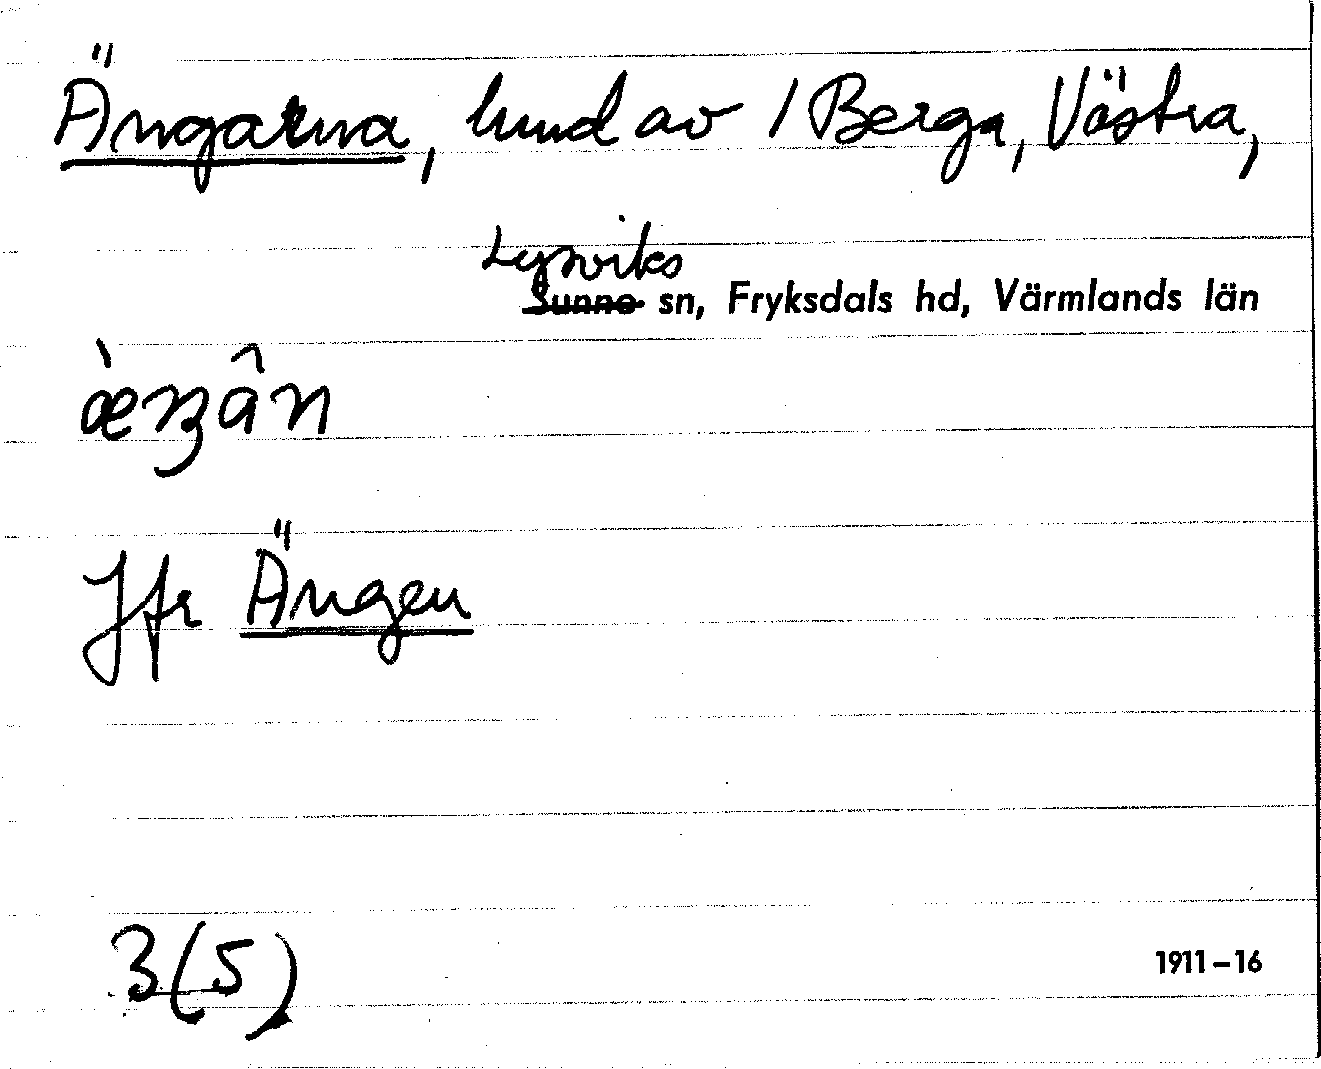 Ängarna, hmd av 1 Berga, Västra,
Lysviks
Sunne sn, Fryksdals hd, Värmlands län
æ̀ŋân
Jfr Ängen
3(5)
1911–16